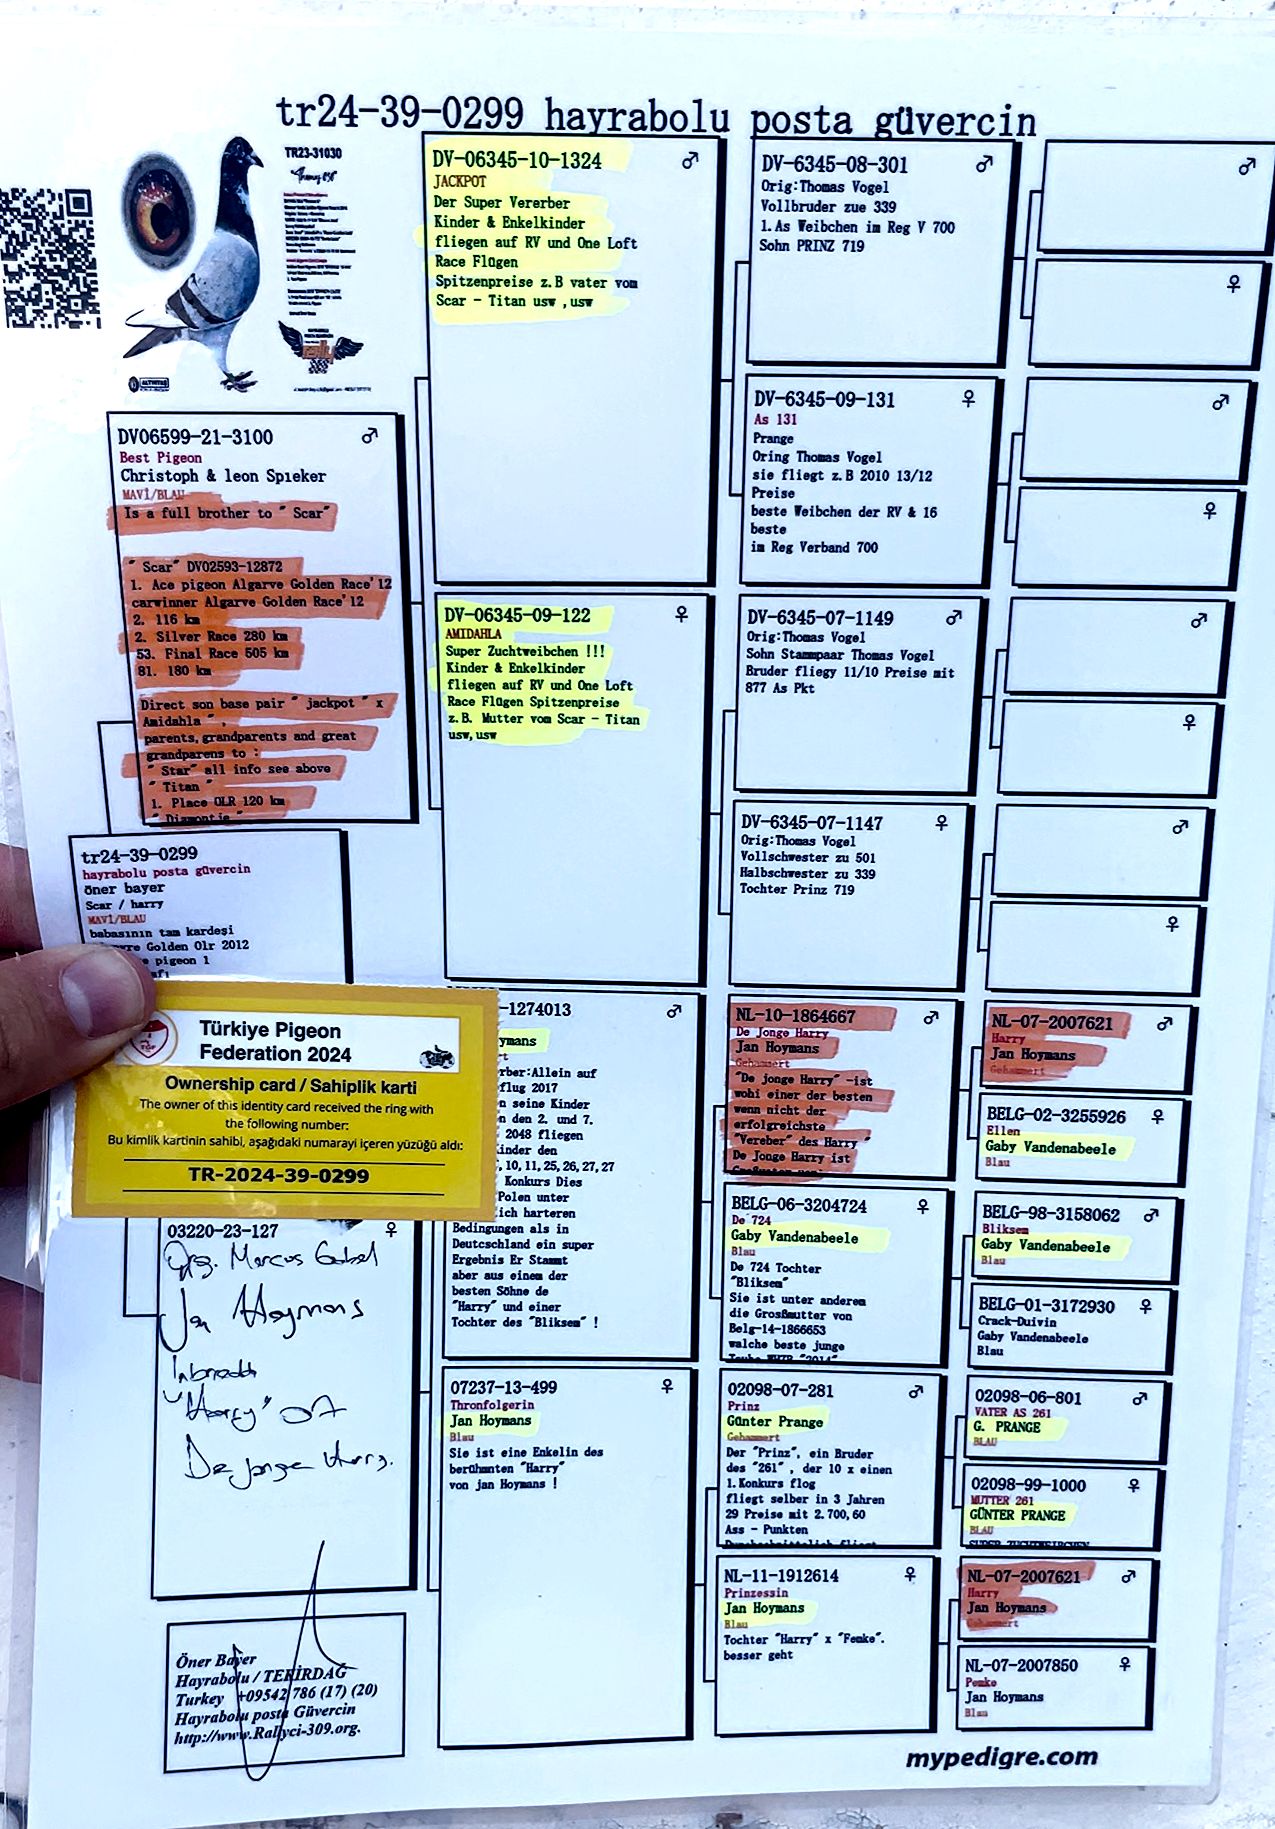 tr24-39-0299 hayrabolu posta güvercin
TR23-31030
DV06599-21-3100 ♂
Best Pigeon
Christoph & leon Spıeker
MAVİ/BLAU
Is a full brother to " Scar"
" Scar" DV02593-12872
1. Ace pigeon Algarve Golden Race'12
carwinner Algarve Golden Race'12
2. 116 km
2. Silver Race 280 km
53. Final Race 505 km
81. 180 km
Direct son base pair " jackpot " x
Amidahla ",
parents,grandparents and great
grandparens to :
" Star" all info see above
" Titan "
1. Place OLR 120 km
" Diamontje "
tr24-39-0299
hayrabolu posta güvercin
öner bayer
Scar / harry
MAVİ/BLAU
babasının tam kardeşi
Golden Olr 2012
pigeon 1
Türkiye Pigeon
Federation 2024
Ownership card / Sahiplik karti
The owner of this identity card received the ring with
the following number:
Bu kimlik kartinin sahibi, aşağıdaki numarayi içeren yüzüğü aldı:
TR-2024-39-0299
03220-23-127 ♀
Jan Hoymans
"Harry" 07
De jonge Harry.
Öner Bayer
Hayrabolu / TEKİRDAĞ
Turkey +09542 786 (17) (20)
Hayrabolu posta Güvercin
http://www.Rallyci-309.org.
DV-06345-10-1324 ♂
JACKPOT
Der Super Vererber
Kinder & Enkelkinder
fliegen auf RV und One Loft
Race Flügen
Spitzenpreise z.B vater vom
Scar - Titan usw ,usw
DV-06345-09-122 ♀
AMIDAHLA
Super Zuchtweibchen !!!
Kinder & Enkelkinder
fliegen auf RV und One Loft
Race Flügen Spitzenpreise
z.B. Mutter vom Scar - Titan
usw,usw
-1274013 ♂
ymans
rber:Allein auf
flug 2017
n seine Kinder
n den 2. und 7.
2048 fliegen
inder den
, 10, 11, 25, 26, 27, 27
Konkurs Dies
Polen unter
ich harteren
Bedingungen als in
Deutcschland ein super
Ergebnis Er Stammt
aber aus einem der
besten Söhne de
"Harry" und einer
Tochter des "Bliksem" !
07237-13-499 ♀
Thronfolgerin
Jan Hoymans
Blau
Sie ist eine Enkelin des
berühmten "Harry"
von jan Hoymans !
DV-6345-08-301 ♂
Orig:Thomas Vogel
Vollbruder zue 339
1.As Weibchen im Reg V 700
Sohn PRINZ 719
DV-6345-09-131 ♀
As 131
Prange
Oring Thomas Vogel
sie fliegt z.B 2010 13/12
Preise
beste Weibchen der RV & 16
beste
im Reg Verband 700
DV-6345-07-1149 ♂
Orig:Thomas Vogel
Sohn Stammpaar Thomas Vogel
Bruder fliegy 11/10 Preise mit
877 As Pkt
DV-6345-07-1147 ♀
Orig:Thomas Vogel
Vollschwester zu 501
Halbschwester zu 339
Tochter Prinz 719
NL-10-1864667 ♂
De Jonge Harry
Jan Hoymans
Gehammert
"De jonge Harry" -ist
wohi einer der besten
wenn nicht der
erfolgreichste
"Vereber" des Harry "
De Jonge Harry ist
BELG-06-3204724 ♀
De 724
Gaby Vandenabeele
Blau
De 724 Tochter
"Bliksem"
Sie ist unter anderem
die Grosßmutter von
Belg-14-1866653
walche beste junge
Taube WHZB "2014"
02098-07-281 ♂
Prinz
Günter Prange
Gehammert
Der "Prinz", ein Bruder
des "261" , der 10 x einen
1.Konkurs flog
fliegt selber in 3 Jahren
29 Preise mit 2.700,60
Ass - Punkten
Durchschnittelich fliegt
NL-11-1912614 ♀
Prinzessin
Jan Hoymans
Blau
Tochter "Harry" x "Femke".
besser geht
♂
♀
♂
♀
♂
♀
♂
♀
NL-07-2007621 ♂
Harry
Jan Hoymans
Gehammert
BELG-02-3255926 ♀
Ellen
Gaby Vandenabeele
Blau
BELG-98-3158062 ♂
Bliksem
Gaby Vandenabeele
Blau
BELG-01-3172930 ♀
Crack-Duivin
Gaby Vandenabeele
Blau
02098-06-801 ♂
VATER AS 261
G. PRANGE
BLAU
02098-99-1000 ♀
MUTTER 261
GÜNTER PRANGE
BLAU
SUPER ZUCHTWEIBCHEN
NL-07-2007621 ♂
Harry
Jan Hoymans
Gehammert
NL-07-2007850 ♀
Femke
Jan Hoymans
Blau
mypedigre.com